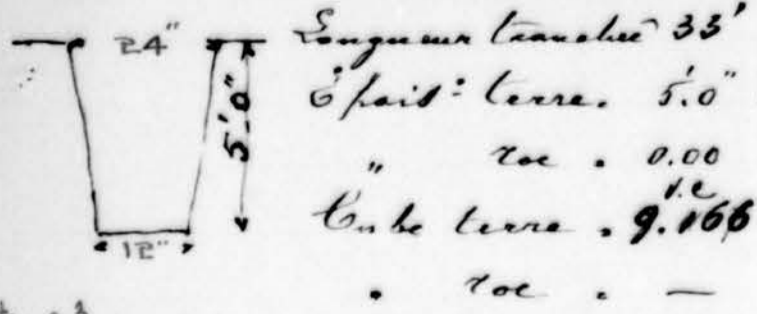 24" Longueur tranchée 33'
5'.0" Épais: terre. 5'.0"
" roc . 0.00
v.c
12" Cube terre . 9.166
" roc . —